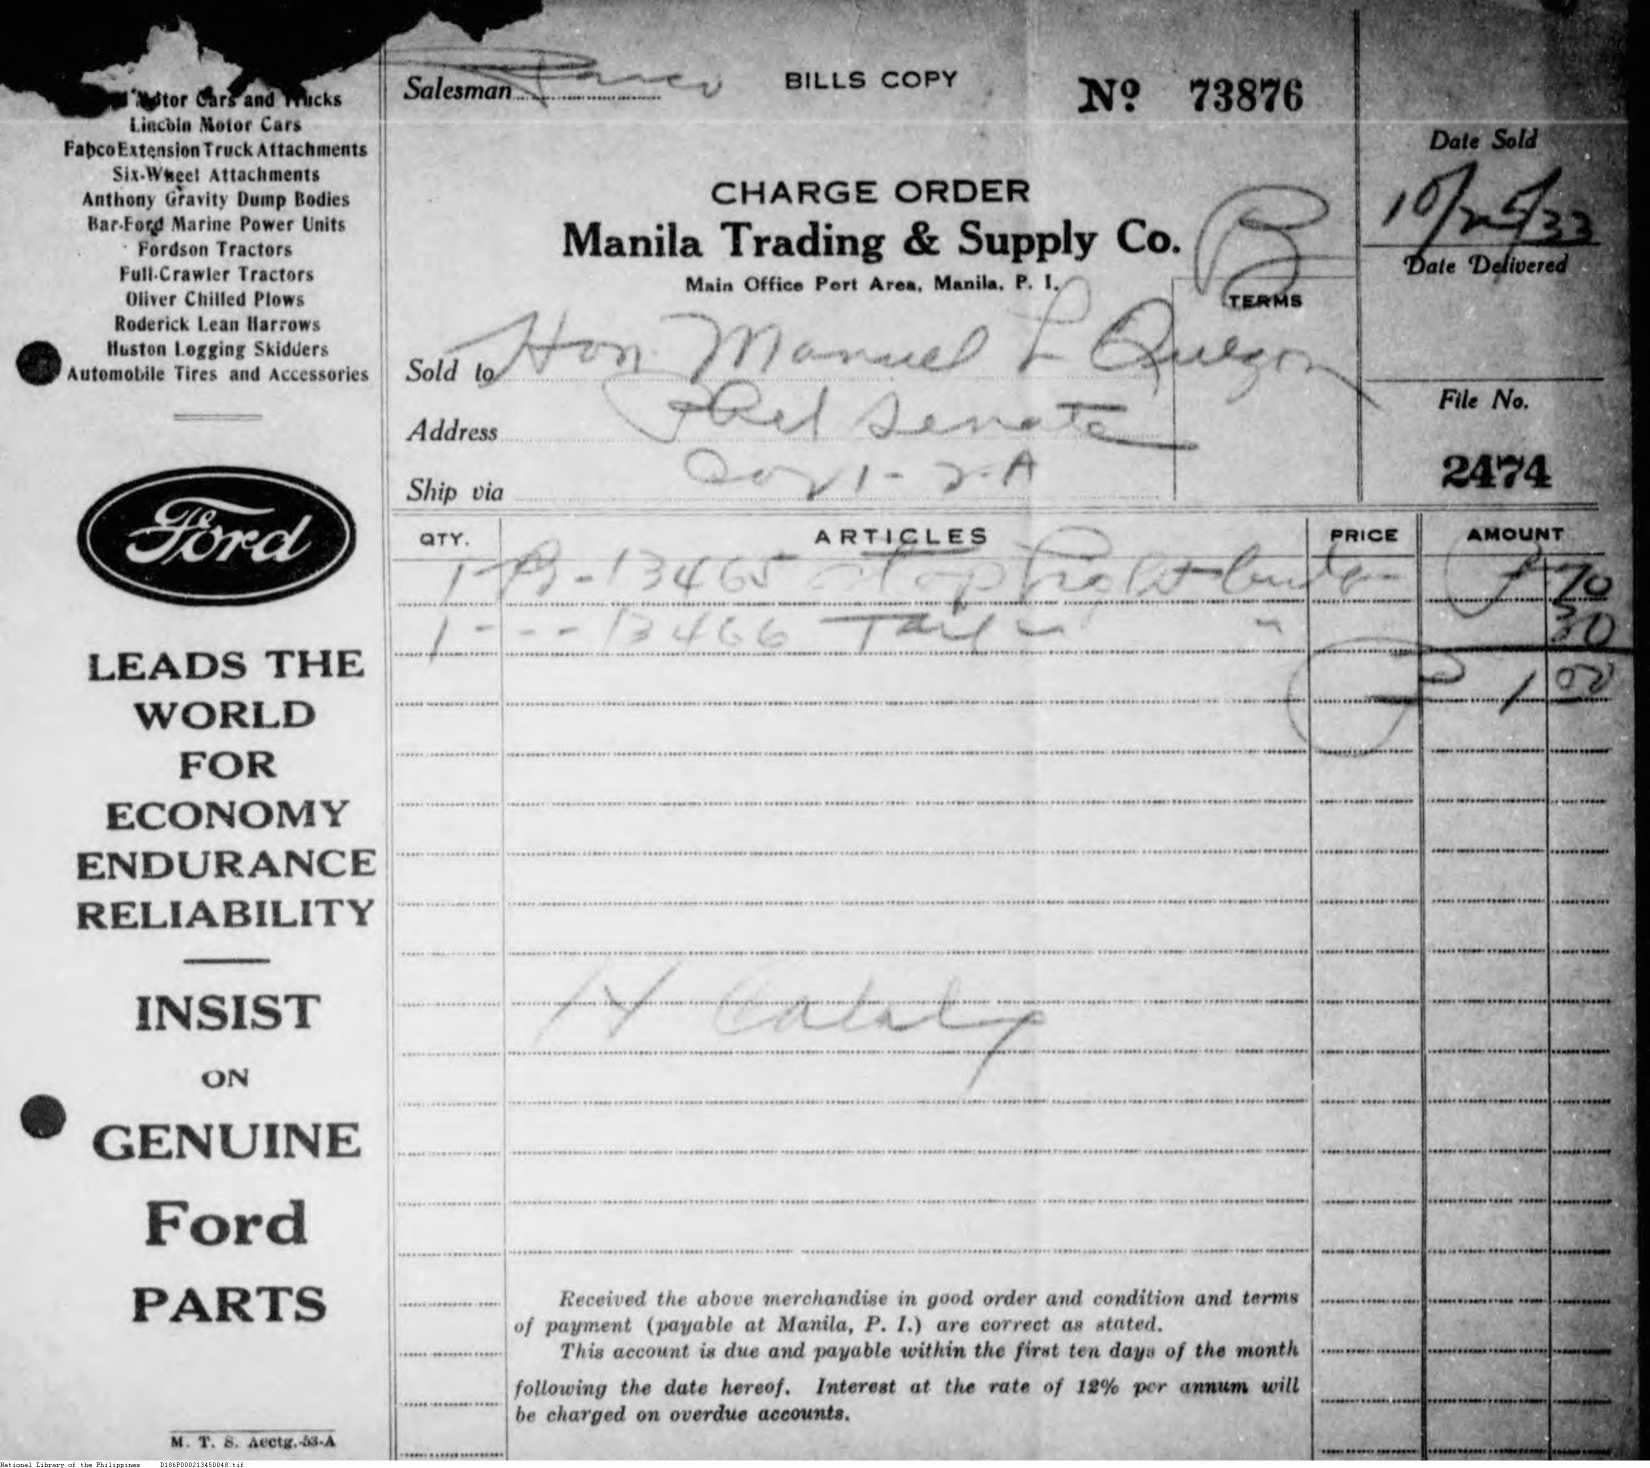 Motor Cars and Trucks
Lincoln Motor Cars
Fabco Extension Truck Attachments
Six-Wheel Attachments
Anthony Gravity Dump Bodies
Bar-Ford Marine Power Units
Fordson Tractors
Full-Crawler Tractors
Oliver Chilled Plows
Roderick Lean Harrows
Huston Logging Skidders
Automobile Tires and Accessories
Ford
LEADS THE
WORLD
FOR
ECONOMY
ENDURANCE
RELIABILITY
INSIST
ON
GENUINE
Ford
PARTS
M. T. S. Acctg.-53-A
Salesman
BILLS COPY
No 73876
CHARGE ORDER
Manila Trading & Supply Co.
Main Office Port Area, Manila, P. I.
B
TERMS
Date Sold
10/25/33
Date Delivered
File No.
2474
Sold to Hon. Manuel L Quezon
Address Phil Senate
Ship via 1-2-A
QTY. ARTICLES PRICE AMOUNT
1 B-13465 Stop Light bulb P 70
1 - - - 13466 Tail " " 30
P 1 00
Received the above merchandise in good order and condition and terms
of payment (payable at Manila, P. I.) are correct as stated.
This account is due and payable within the first ten days of the month
following the date hereof. Interest at the rate of 12% per annum will
be charged on overdue accounts.
National Library of the Philippines D186P000213450048.tif